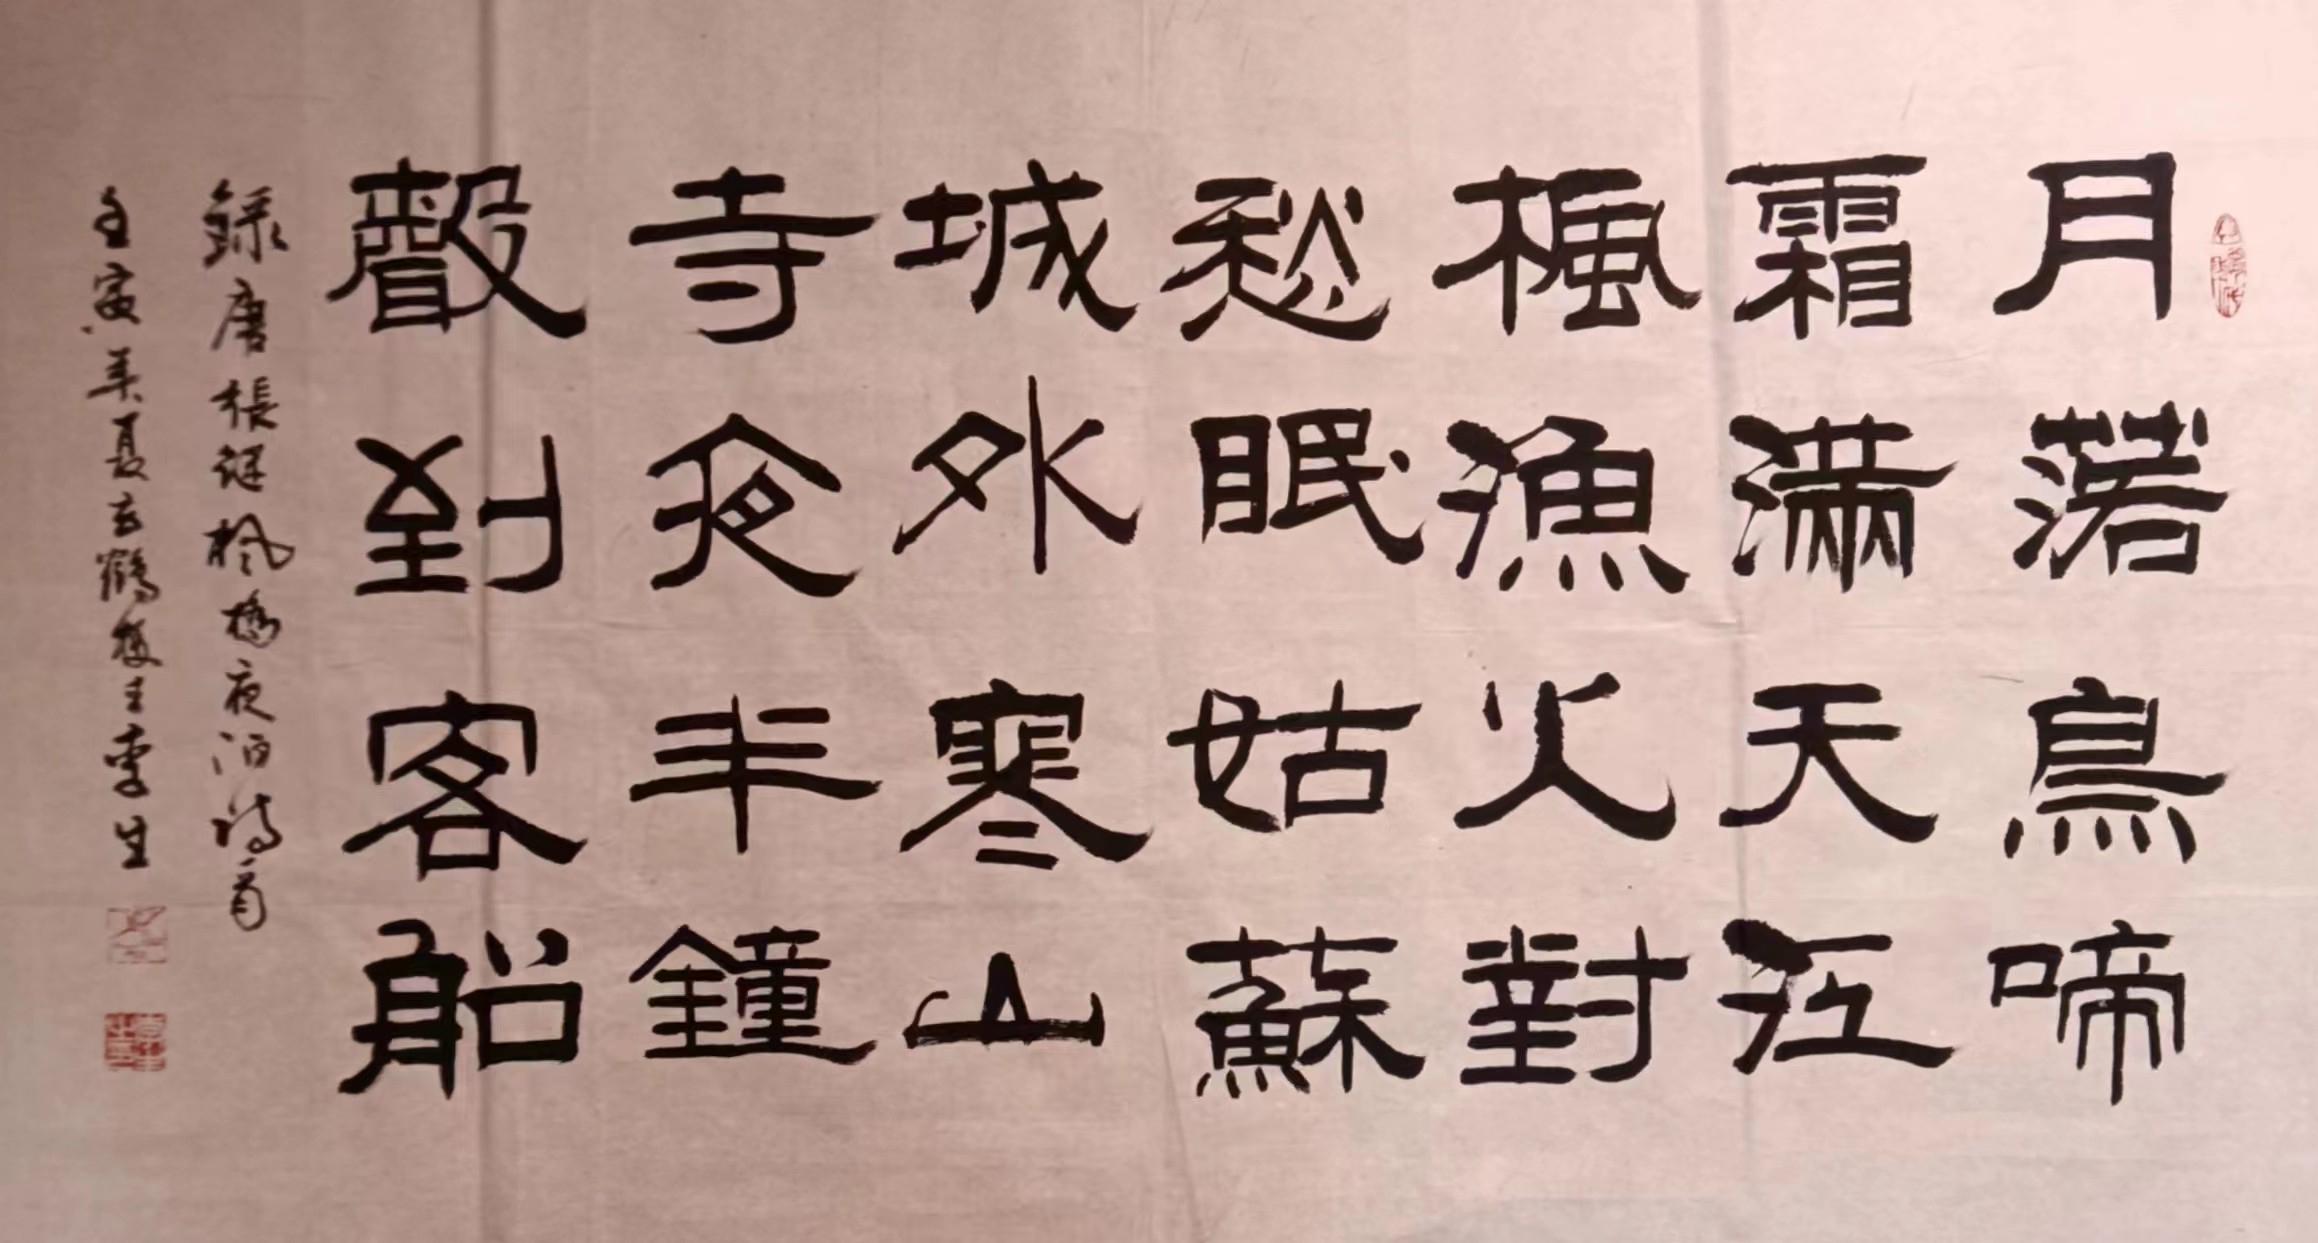 月落烏啼
霜滿天江
楓漁火對
愁眠姑蘇
城外寒山
寺夜半鐘
聲到客船
錄唐張継枫橋夜泊诗一首
壬寅年夏云鶴楼主李生